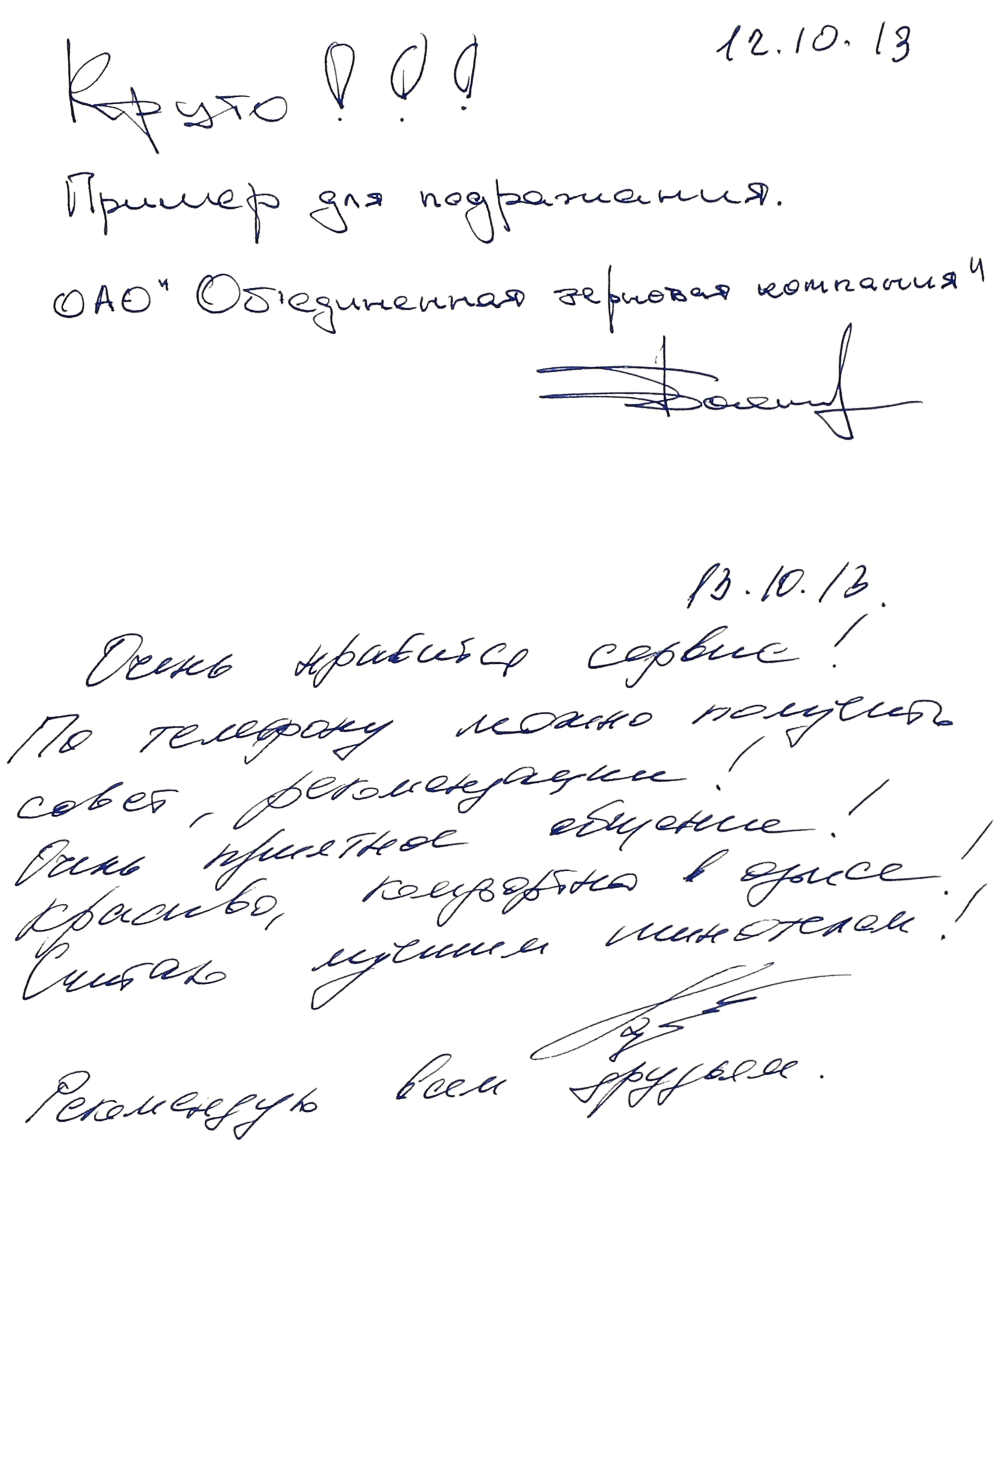 12.10.13
Круто!!!
Пример для подражания.
ОАО "Объединенная зерновая компания"
13.10.13.
Очень нравится сервис!
По телефону можно получить
совет, рекомендации!
Очень приятное общение!
Красиво, комфортно в офисе!
Считаю лучшим шинотелом!
Рекомендую всем друзьям.